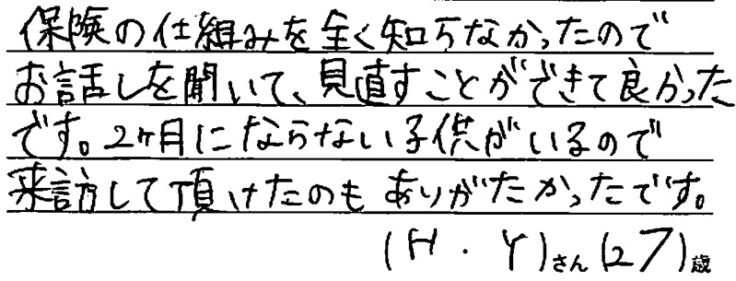 保険の仕組みを全く知らなかったので
お話しを聞いて、見直すことができて良かった
です。2ヶ月にならない子供がいるので
来訪して頂けたのもありがたかったです。
(H・Y)さん(27)歳